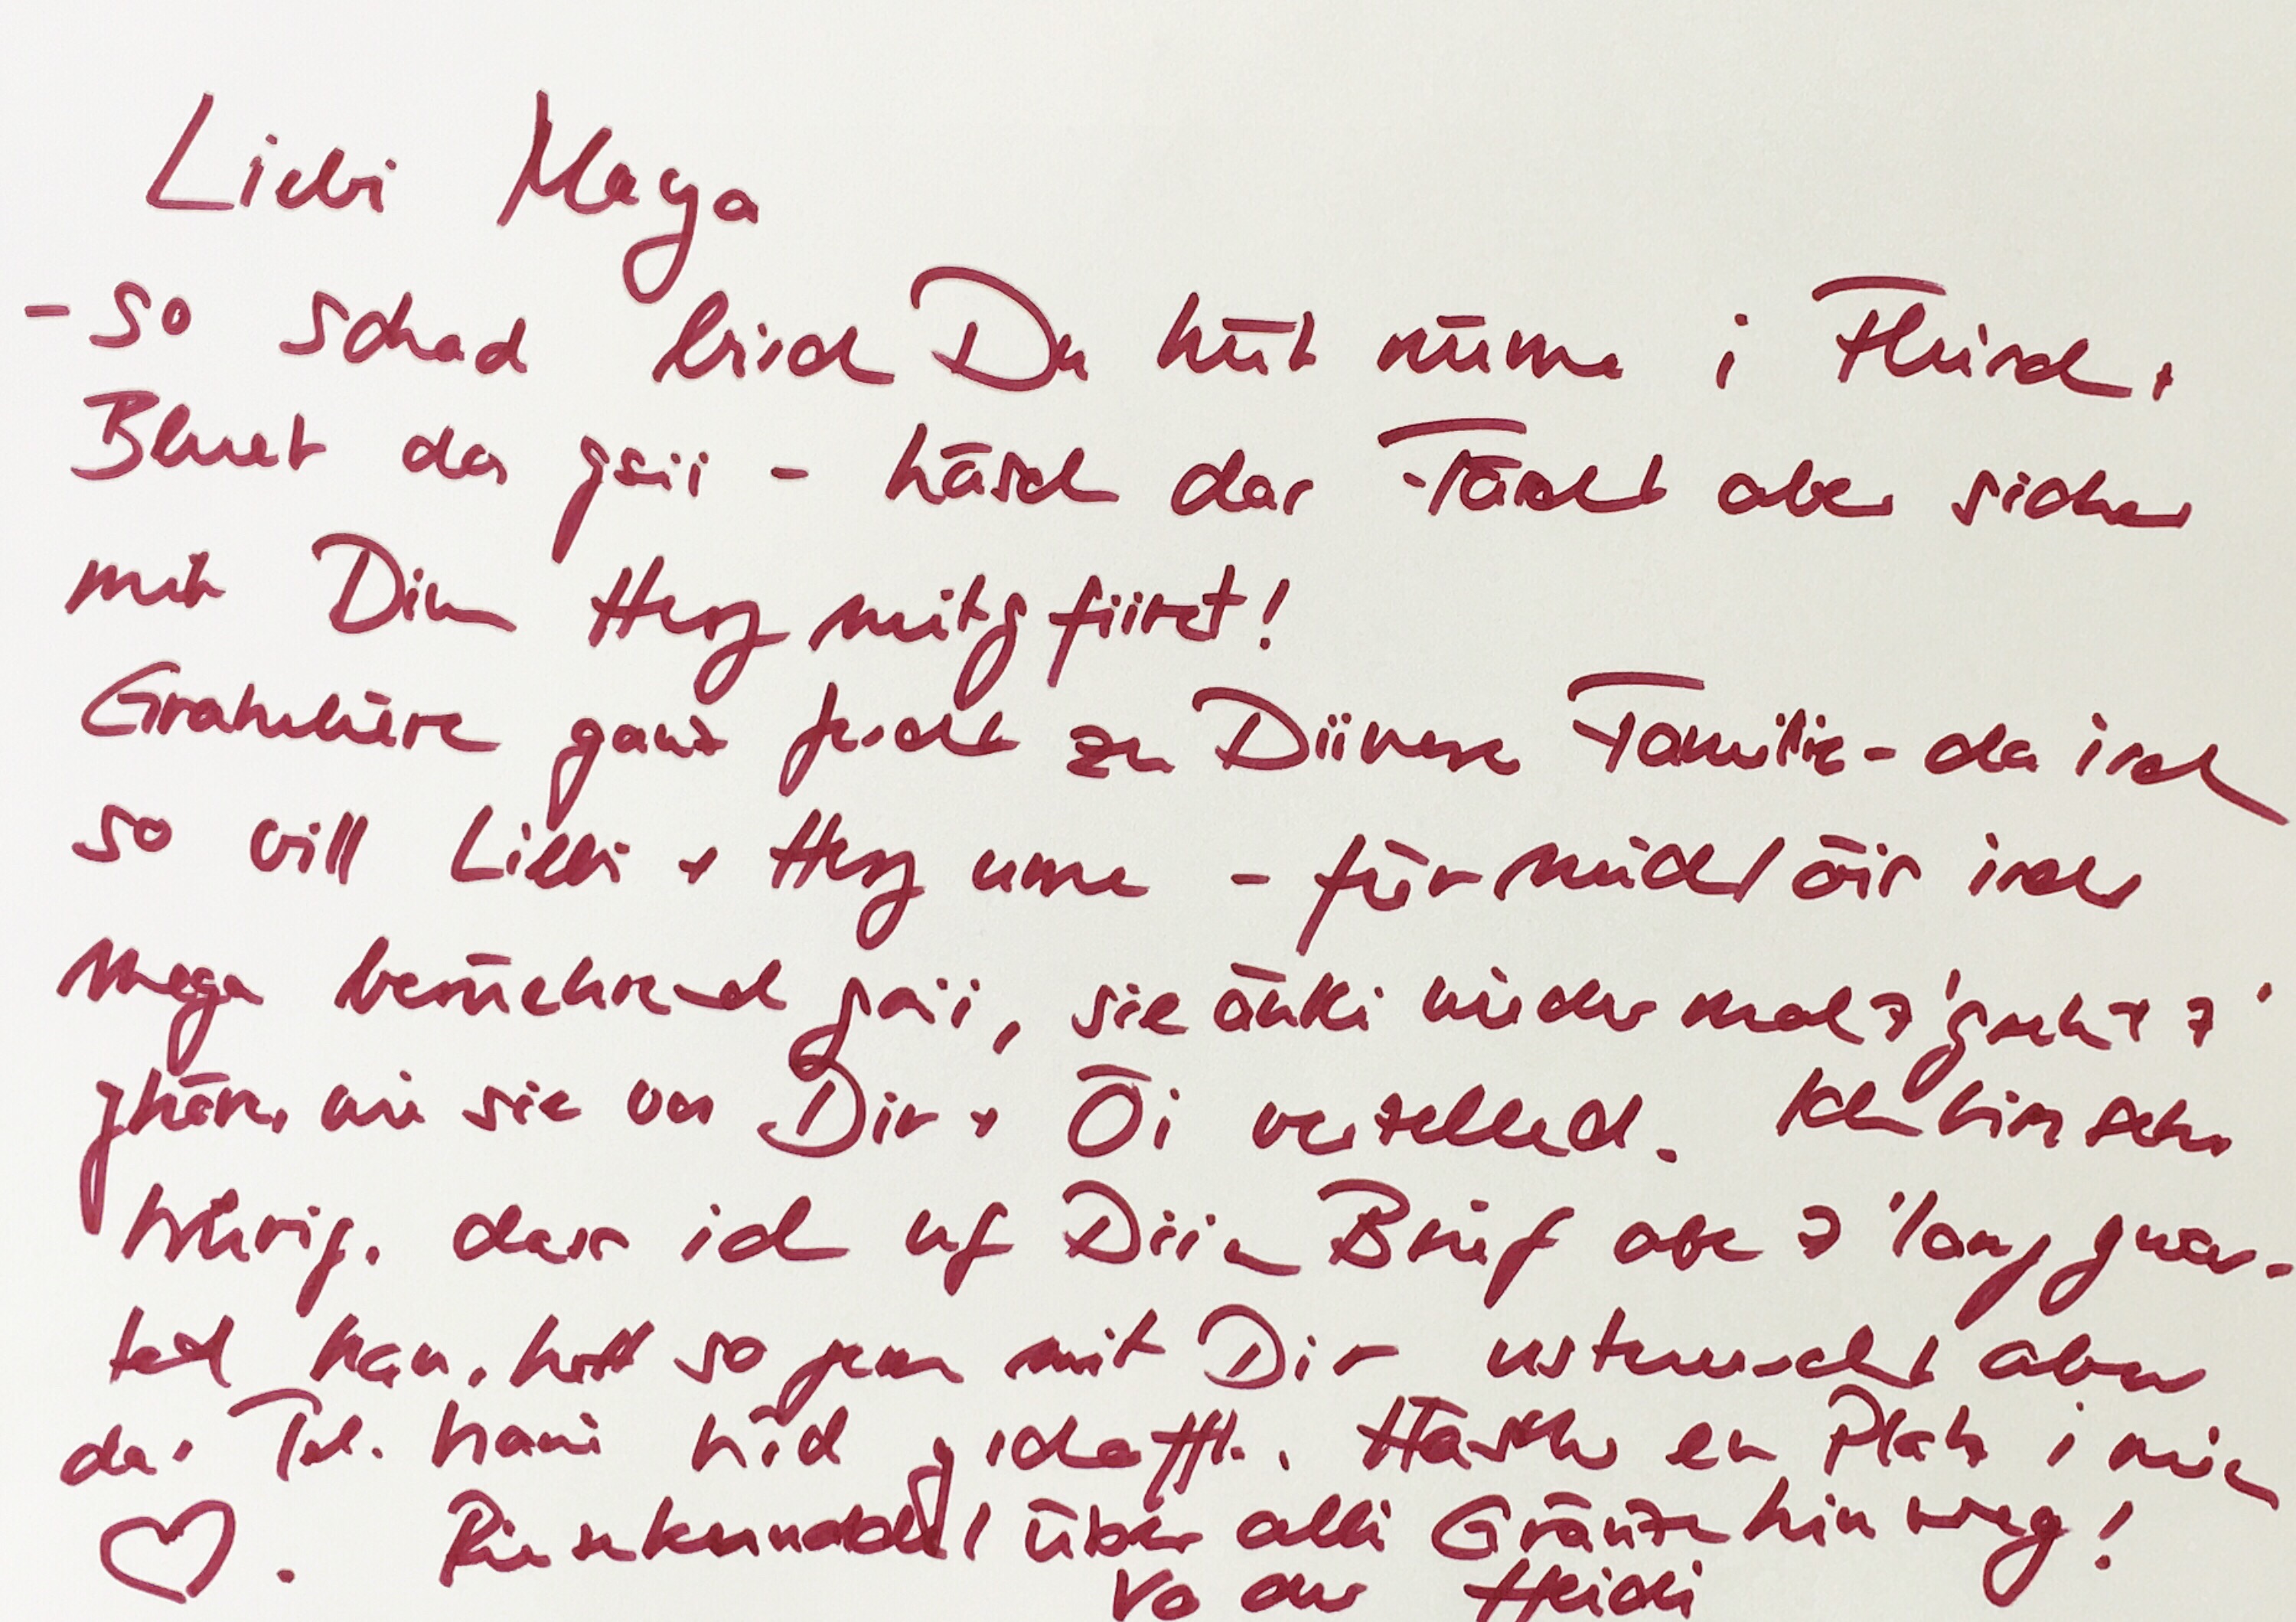 Liebi Maya
- so schad bisch Du hüt nüme i Fleisch +
Bluet da gsii - häsch das Fäscht aber sicher
mit Dim Herz mitgfiiret!
Gratuliere ganz fescht zu Diinere Familie - da isch
so vill Liebi + Herz ume - für mich / öis isch
mega berüehrend gsii, sie änki wieder mal z'gseh + z'
ghöre, wie sie vo Dir + Öi verzelled. Ich bin sehr
truurig, dass ich uf Diin Brief abe z'lang gwar-
tet han, hett so gern mit Dir ustuuscht aber
das Tel. hani nid gschafft. Häsch en Platz i mim
♡. Riesekunddel über alli Gränze hinweg!
Vo der Heidi